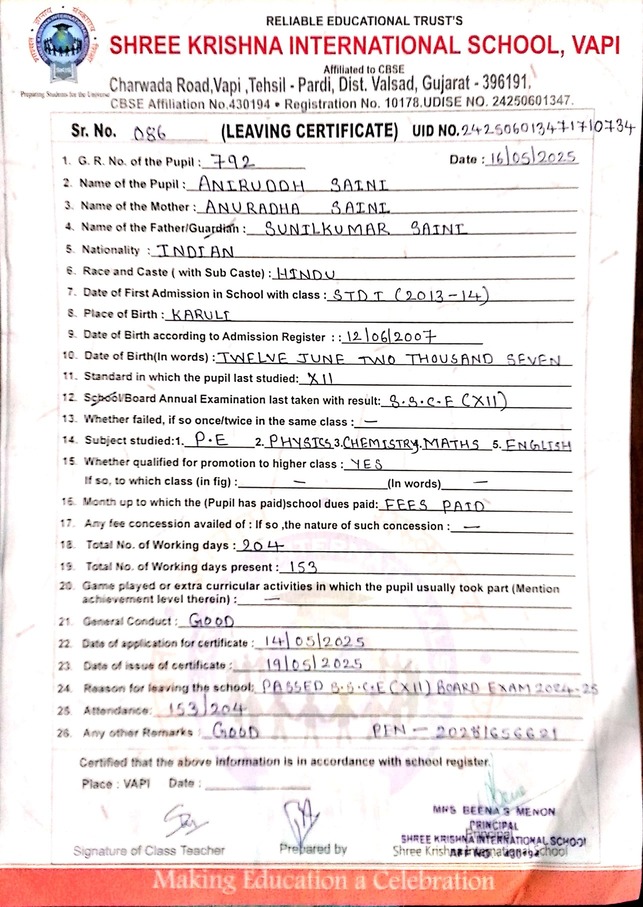 RELIABLE EDUCATIONAL TRUST'S
SHREE KRISHNA INTERNATIONAL SCHOOL, VAPI
Affiliated to CBSE
Charwada Road,Vapi ,Tehsil - Pardi, Dist. Valsad, Gujarat - 396191.
Preparing Students for the Universe
CBSE Affiliation No.430194 • Registration No. 10178.UDISE NO. 24250601347.
Sr. No. 086 (LEAVING CERTIFICATE) UID NO.
1. G. R. No. of the Pupil : 792 Date : 16/05/2025
2. Name of the Pupil : ANIRUDDH SAINI
3. Name of the Mother : ANURADHA SAINI
4. Name of the Father/Guardian : SUNILKUMAR SAINI
5. Nationality : INDIAN
6. Race and Caste ( with Sub Caste) : HINDU
7. Date of First Admission in School with class : STD I (2013-14)
8. Place of Birth : KARULI
9. Date of Birth according to Admission Register : : 12/06/2007
10. Date of Birth(In words) : TWELVE JUNE TWO THOUSAND SEVEN
11. Standard in which the pupil last studied: XII
12. School/Board Annual Examination last taken with result: S.S.C.E (XII)
13. Whether failed, if so once/twice in the same class : —
14. Subject studied:1. P.E 2. PHYSICS 3. CHEMISTRY. MATHS 5. ENGLISH
15. Whether qualified for promotion to higher class : YES
If so, to which class (in fig) : — (In words) —
16. Month up to which the (Pupil has paid)school dues paid: FEES PAID
17. Any fee concession availed of : If so ,the nature of such concession : —
18. Total No. of Working days : 204
19. Total No. of Working days present : 153
20. Game played or extra curricular activities in which the pupil usually took part (Mention
achievement level therein) : —
21. General Conduct : GOOD
22. Date of application for certificate : 14/05/2025
23. Date of issue of certificate : 19/05/2025
24. Reason for leaving the school: PASSED S.S.C.E (XII) BOARD EXAM 2024-25
25. Attendance: 153/204
26. Any other Remarks : GOOD PEN -
Certified that the above information is in accordance with school register.
Place : VAPI Date :
MRS BEENA S MENON
PRINCIPAL
SHREE KRISHNA INTERNATIONAL SCHOOL
Signature of Class Teacher Prepared by Principal
Shree Krishna International School
Making Education a Celebration